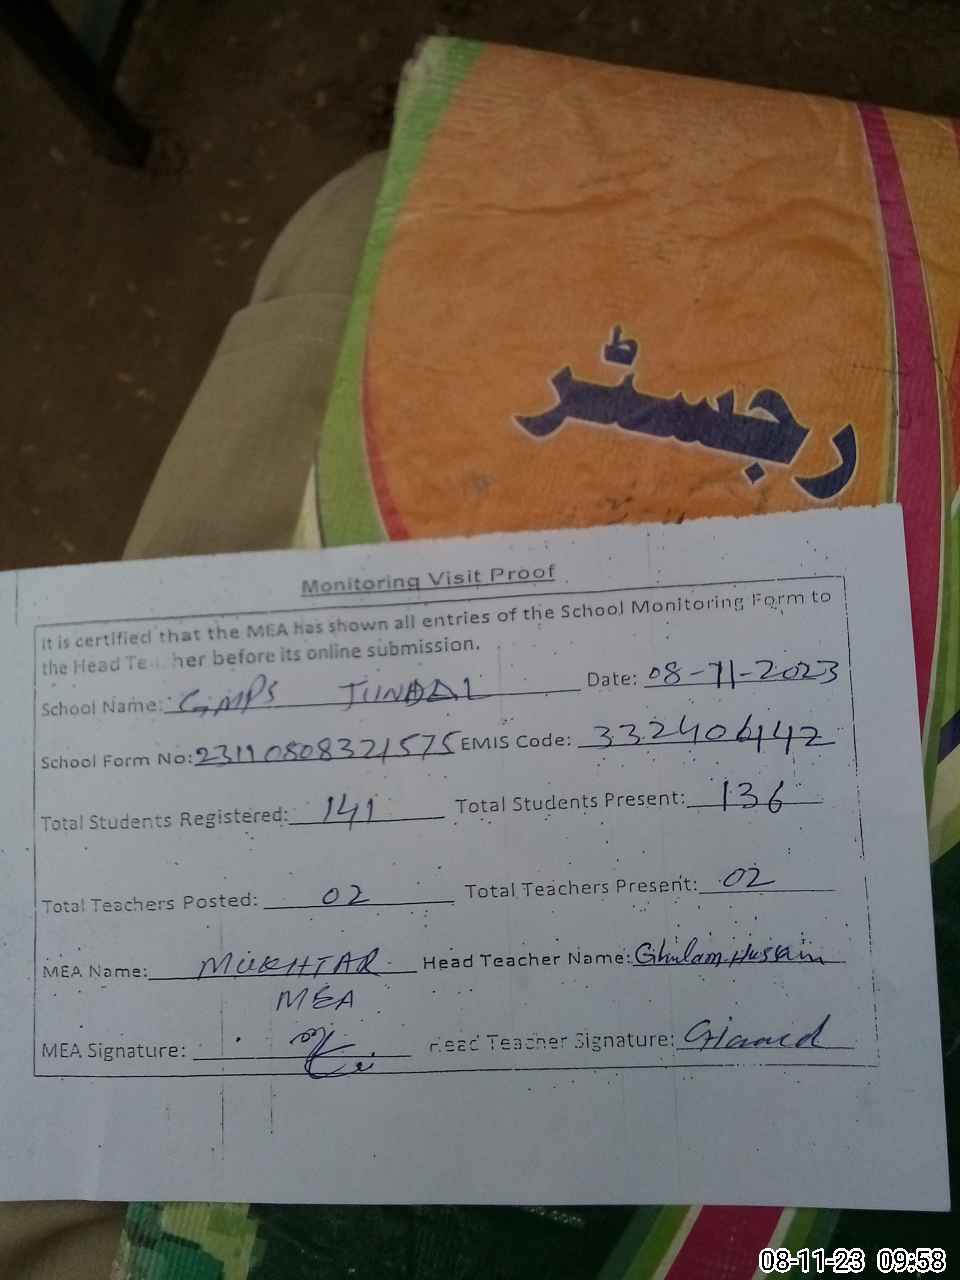 رجسٹر
Monitoring Visit Proof
It is certified that the MEA has shown all entries of the School Monitoring Form to
the Head Teacher before its online submission.
School Name: GMPS JUNDAL Date: 08-11-2023
School Form No: 23110808321575 EMIS Code: 332406142
Total Students Registered: 141 Total Students Present: 136
Total Teachers Posted: 02 Total Teachers Present: 02
MEA Name: MUKHTAR Head Teacher Name: Ghulam Hussain
MEA
MEA Signature: Head Teacher Signature:
08-11-23 09:58